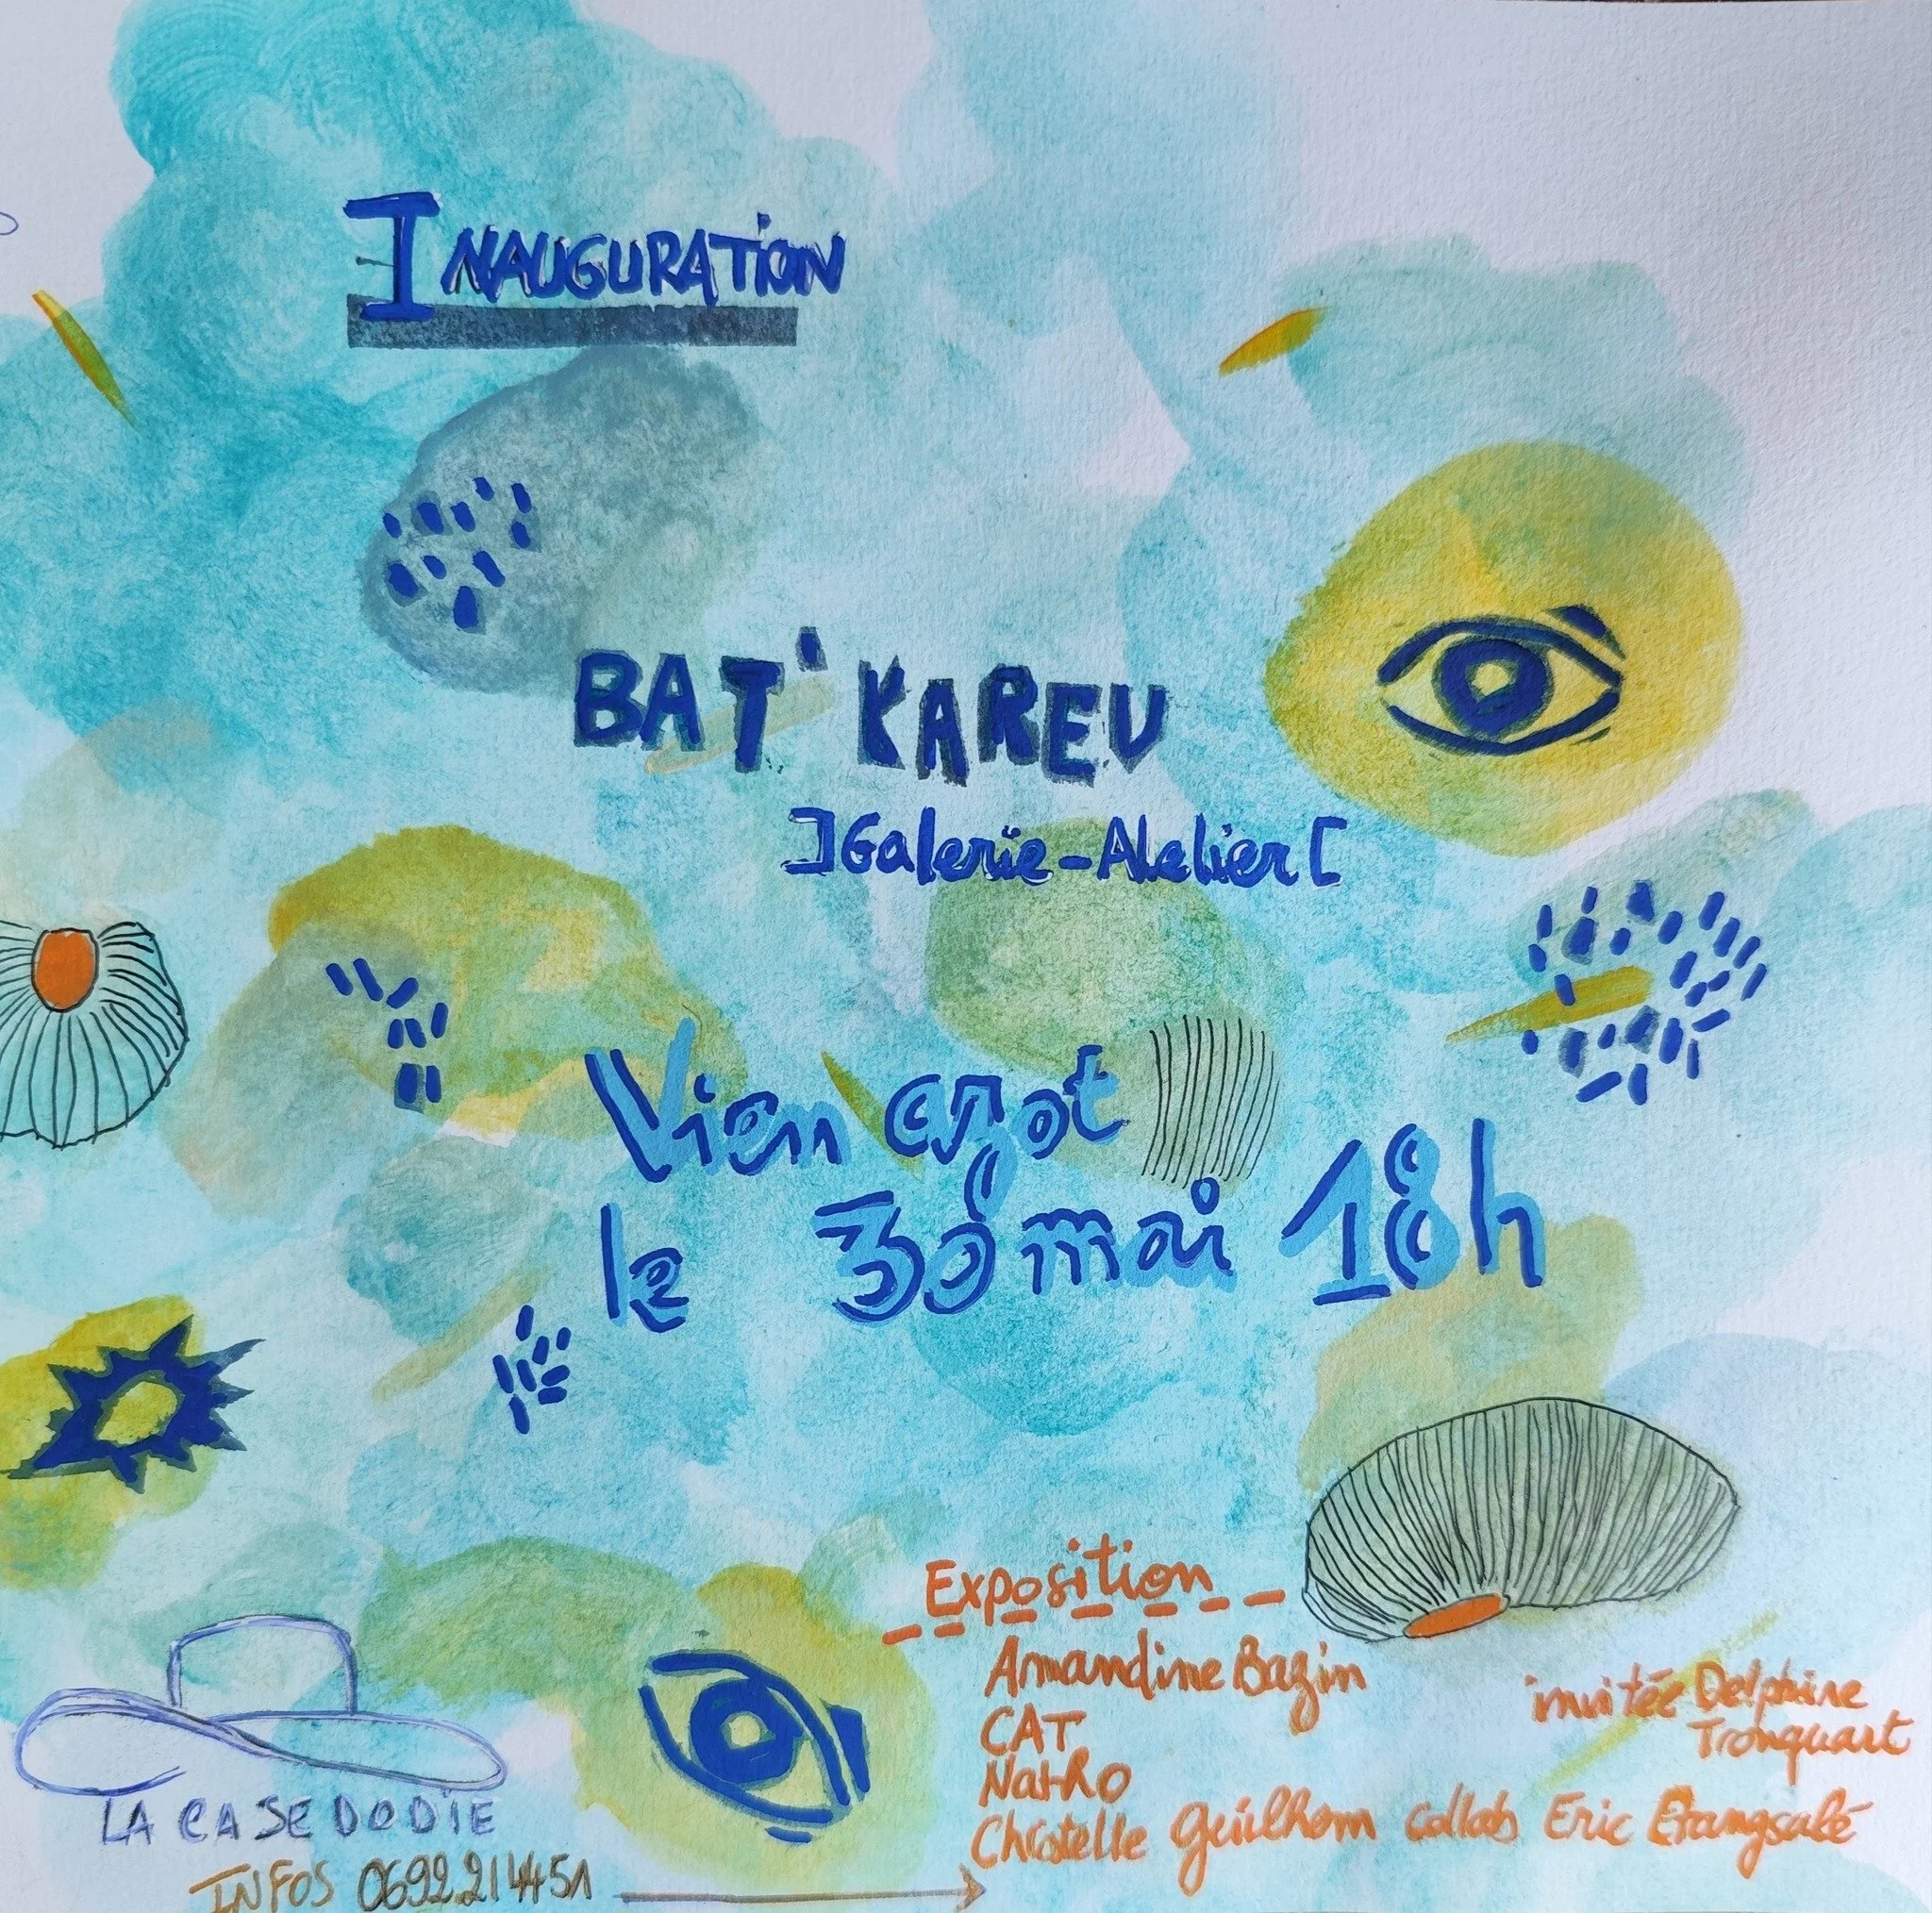 INAUGURATION
BAT' KAREV
]Galerie-Atelier[
Vien crot
le 30 mai 18h
Exposition
Amandine Bazin
CAT
invitée Delphine
Tronquart
Christelle Guilhem collab Eric Etangsalé
LA CASE DODIE
INFOS 0692214451